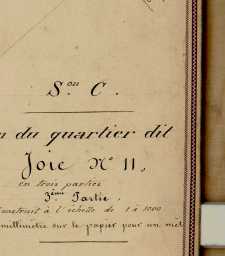 S.on C.
n du quartier dit
Joie N° 11,
en trois parties
3ème Partie,
Construit à l'échelle de 1 à 1000
millimètre sur le papier pour un mèt